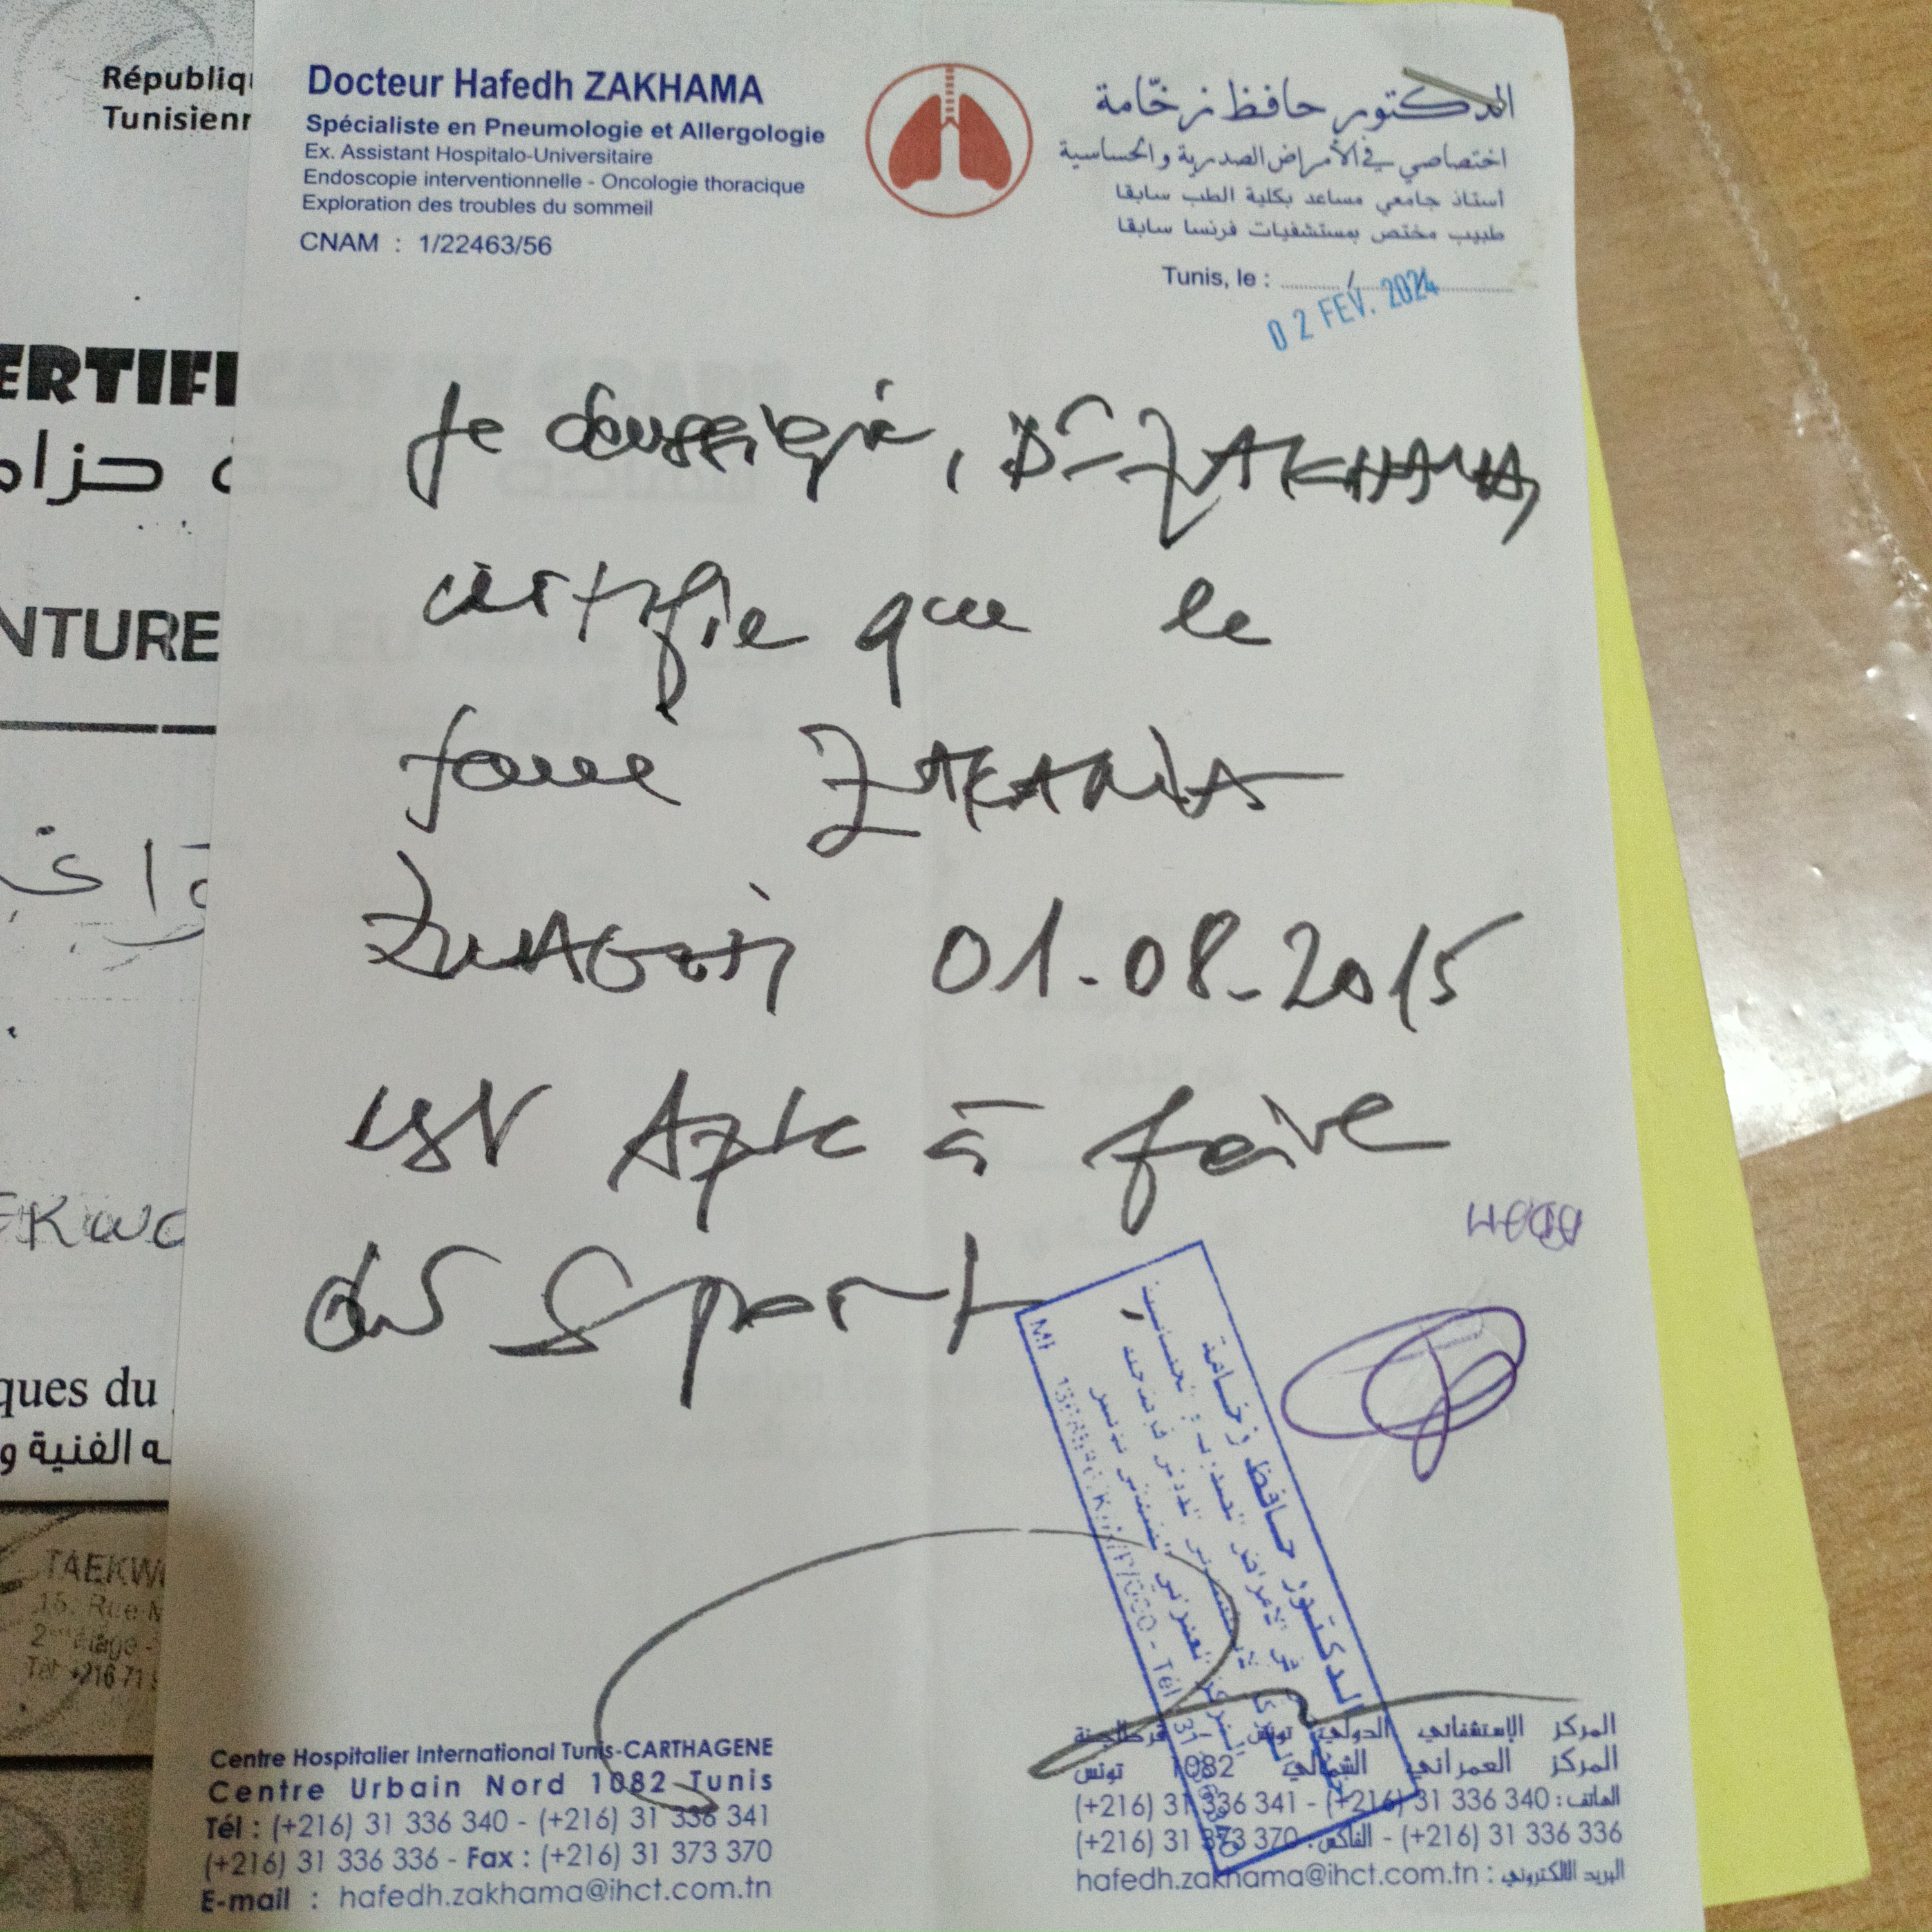 Républiq
Tunisienn
ERTIFI
NTURE
EKwo
ques du
ه الفنية و
TAEKW
15, Rue M
Docteur Hafedh ZAKHAMA
Spécialiste en Pneumologie et Allergologie
Ex. Assistant Hospitalo-Universitaire
Endoscopie interventionnelle - Oncologie thoracique
Exploration des troubles du sommeil
CNAM : 1/22463/56
الدكتور حافظ زخّامة
اختصاصي في الأمراض الصدرية و الحساسية
أستاذ جامعي مساعد بكلية الطب سابقا
طبيب مختص بمستشفيات فرنسا سابقا
Tunis, le :
02 FEV. 2024
Je soussigné, Dr ZAKHAMA,
certifie que le
jeune ZAKARIA
01-08-2015
est Apte à faire
du Sport
الدكتور حافظ زخامة
Centre Hospitalier International Tunis-CARTHAGENE
Centre Urbain Nord 1082 Tunis
Tél : (+216) 31 336 340 - (+216) 31 336 341
(+216) 31 336 336 - Fax : (+216) 31 373 370
E-mail : hafedh.zakhama@ihct.com.tn
المركز الإستشفائي الدولي تونس - قرطاجنة
المركز العمراني الشمالي 1082 تونس
الهاتف : 340 336 31 (216+) - 341 336 31 (216+)
336 336 31 (216+) - الفاكس : 370 373 31 (216+)
البريد الالكتروني : hafedh.zakhama@ihct.com.tn